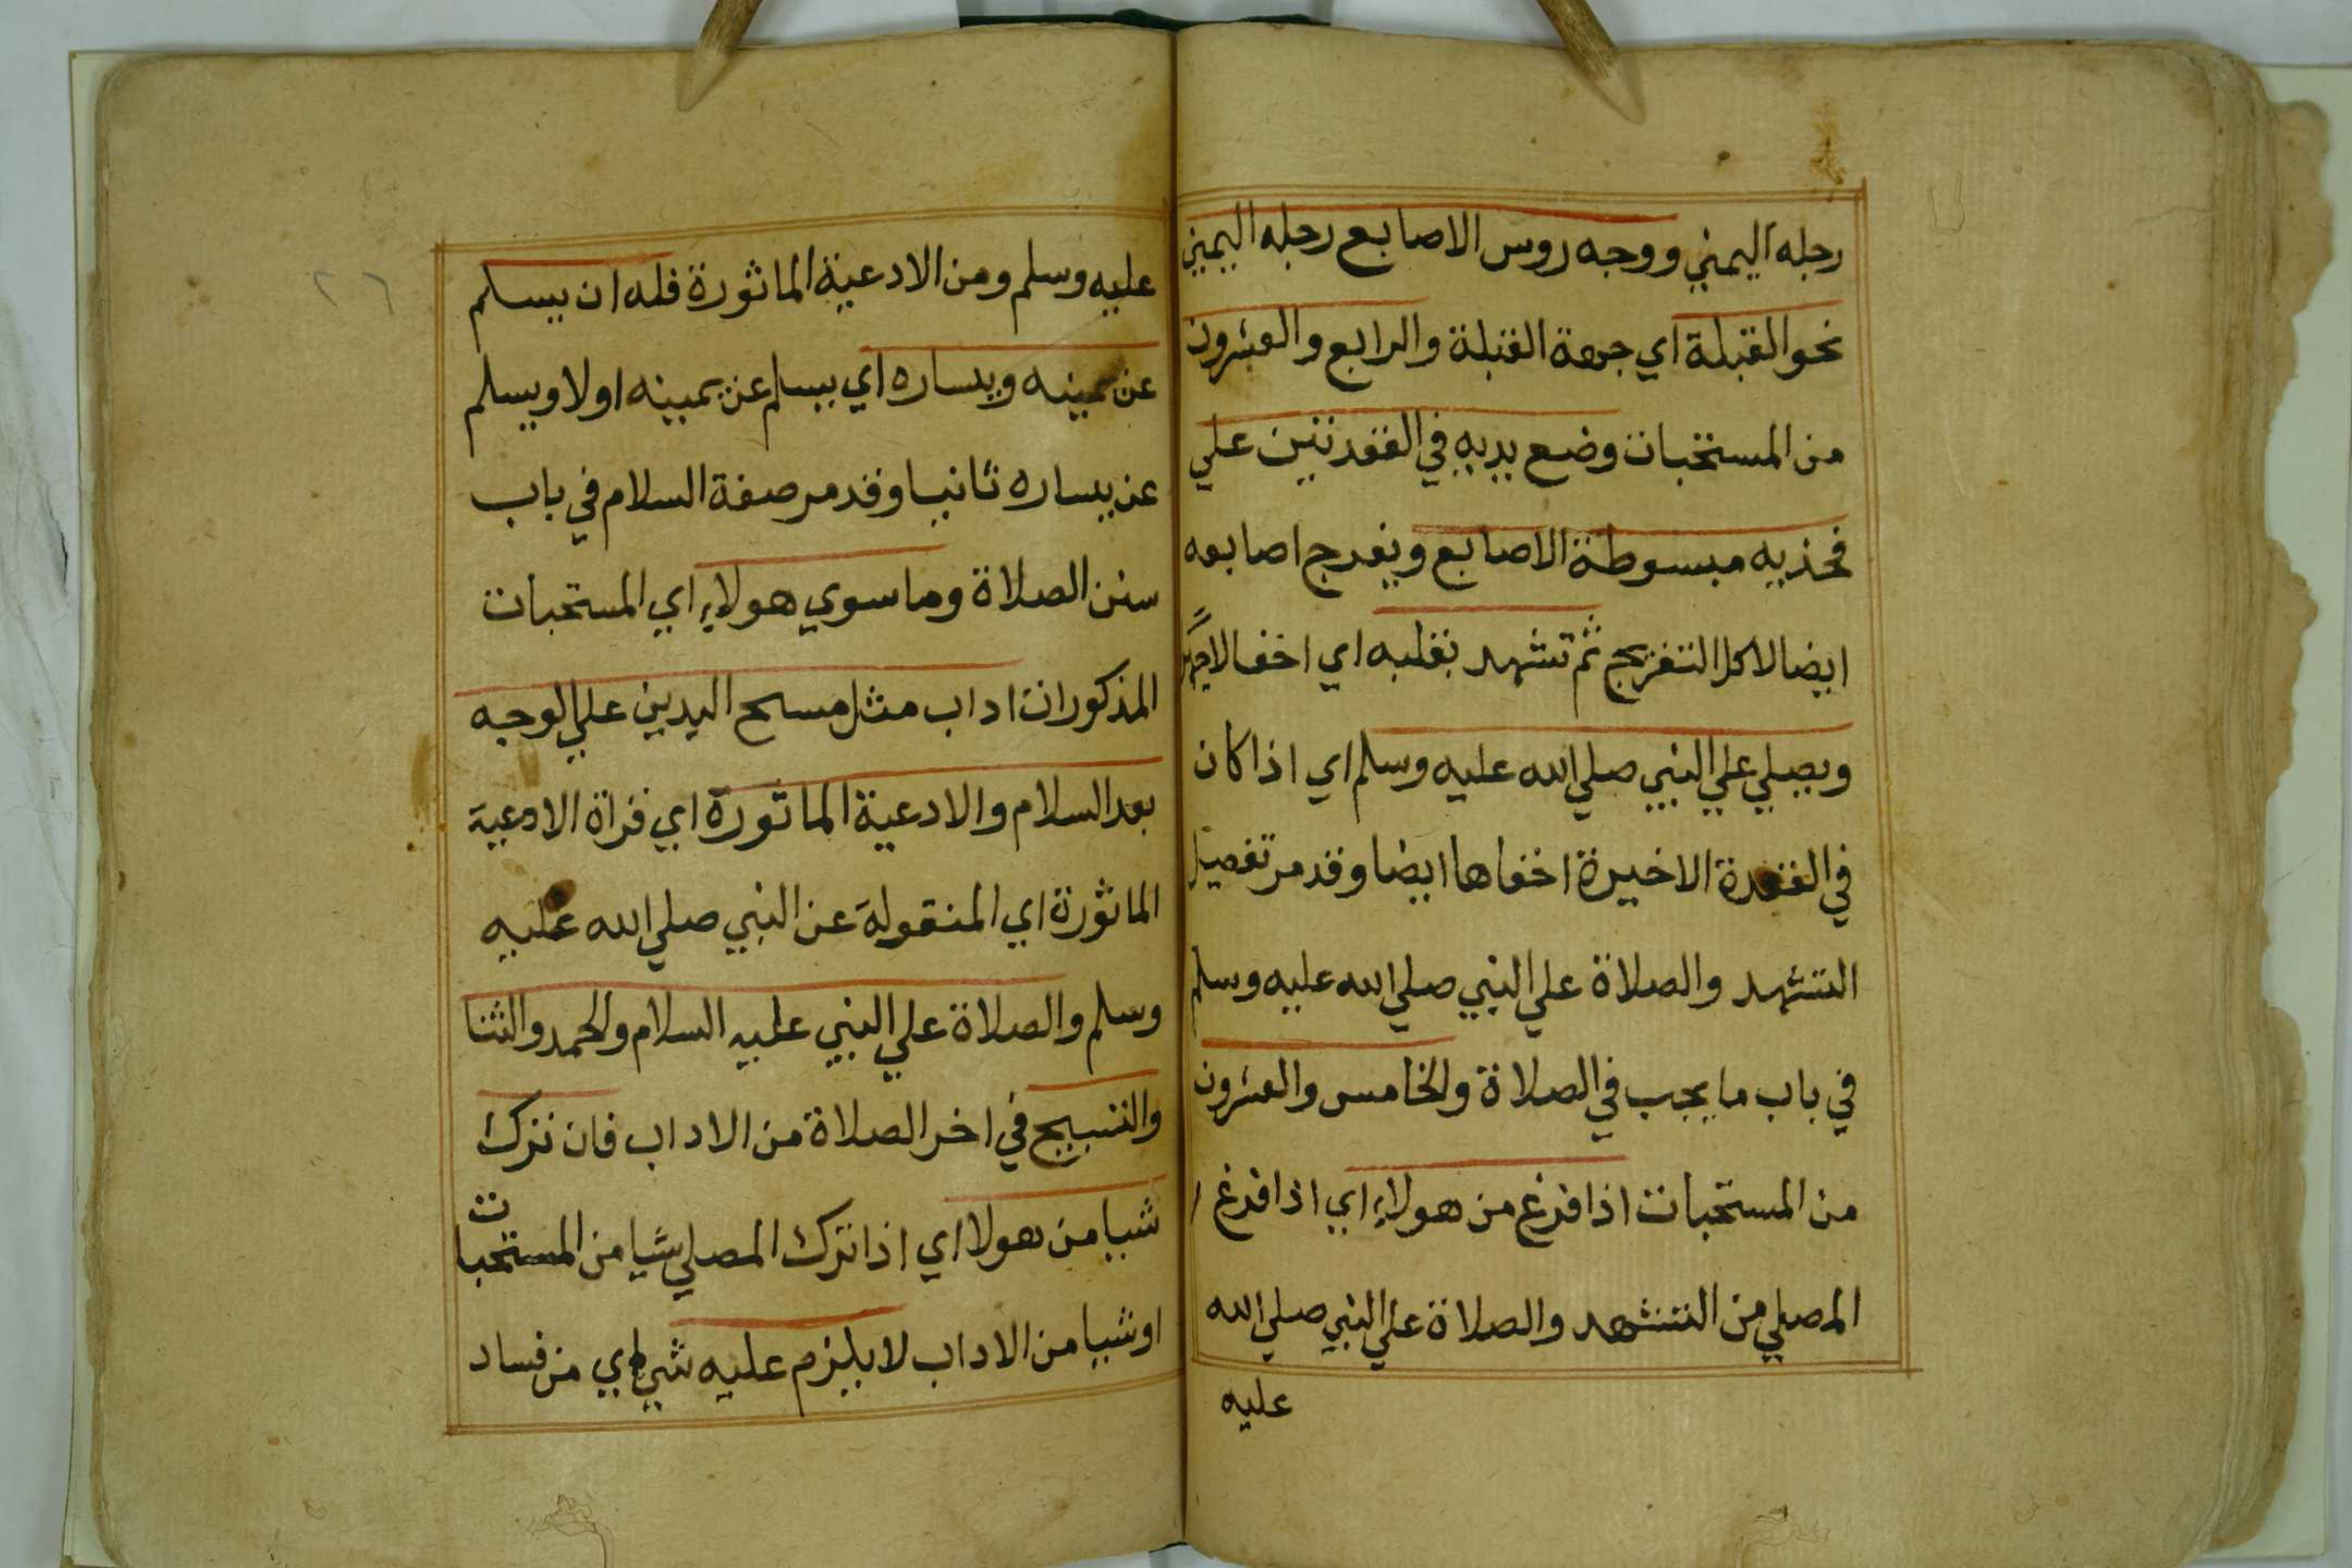 رجله اليمني ووجه روس الاصابع رجله اليميني
نحو القبلة اي جهة القبلة والرابع والعشرون
من المستحبات وضع يديه في القعدتين علي
فخذيه مبسوطة الاصابع ويفرج اصابعه
ايضا لا كل التفريج ثم تشهد بقلبه اي اخفا لا جهرا
ويصلي علي النبي صلي الله عليه وسلم اي اذا كان
في القعدة الاخيرة اخفاها ايضا وقد مر تفصيل
التشهد والصلاة علي النبي صلي الله عليه وسلم
في باب ما يجب في الصلاة والخامس والعشرون
من المستحبات اذا فرغ من هولاء اي اذا فرغ
المصلي من التشهد والصلاة علي النبي صلي الله
عليه
٢٦
عليه وسلم ومن الادعية الماثورة فله ان يسلم
عن يمينه ويساره اي يسلم عن يمينه اولا ويسلم
عن يساره ثانيا وقد مر صفة السلام في باب
سنن الصلاة وما سوي هولاء اي المستحبات
المذكورات اداب مثل مسح اليدين علي الوجه
بعد السلام والادعية الماثورة اي قراة الادعية
الماثورة اي المنقولة عن النبي صلي الله عليه
وسلم والصلاة علي النبي عليه السلام والحمد والثنا
والتسبيح في اخر الصلاة من الاداب فان ترك
شيا من هولا اي اذا ترك المصلي شيا من المستحبات
او شيا من الاداب لا يلزم عليه شي اي من فساد